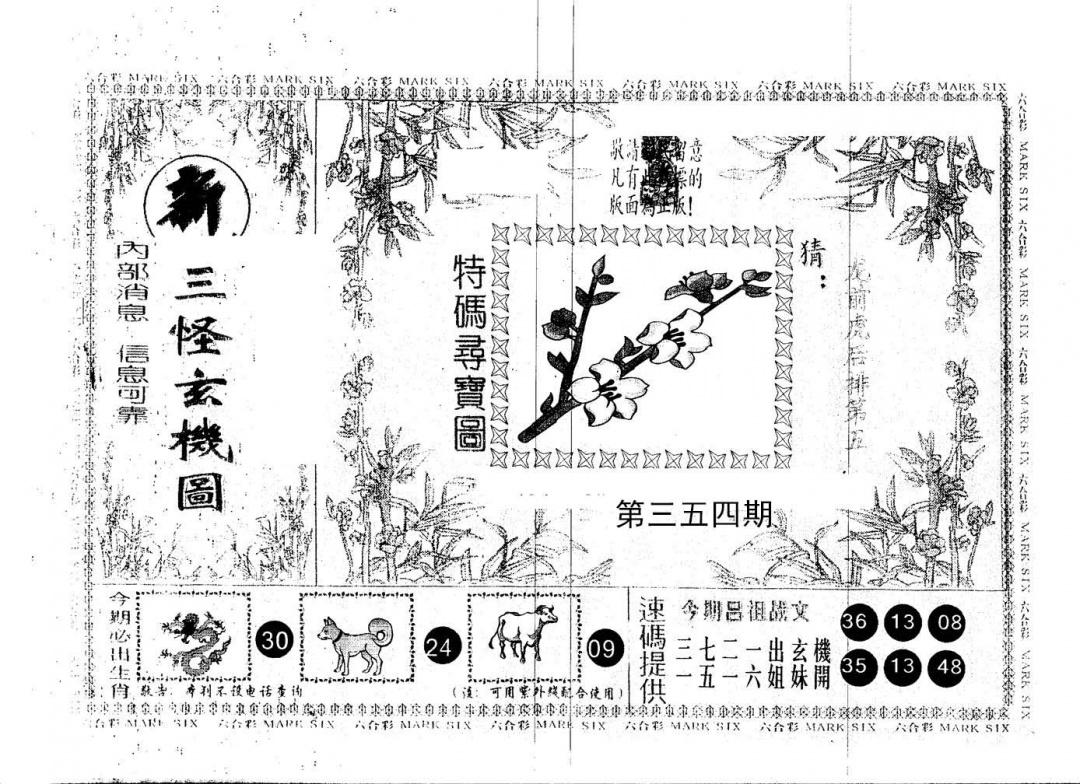 六合彩 MARK SIX 六合彩 MARK SIX 六合彩 MARK SIX 六合彩 MARK SIX 六合彩 MARK SIX 六合彩 MARK SIX 六合彩 MARK SIX
新
三怪玄機圖
內部消息 信息可靠
敬請留意
凡有此標的
版面為正版!
特碼尋寶圖
猜:
虎前虎后排第五
第三五四期
今期必出生肖
30
24
09
敬告:本刊不设电话查询
(注:可用紫外线配合使用)
速碼提供
今期吕祖战文
三七二一出玄機
一五一六姐妹開
36 13 08
35 13 48
六合彩 MARK SIX 六合彩 MARK SIX 六合彩 MARK SIX 六合彩 MARK SIX 六合彩 MARK SIX 六合彩 MARK SIX 六合彩 MARK SIX
六合彩 MARK SIX 六合彩 MARK SIX 六合彩 MARK SIX 六合彩 MARK SIX 六合彩 MARK SIX